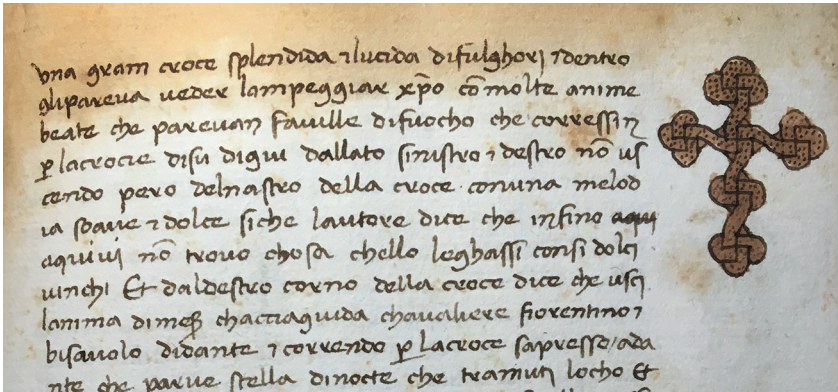 vna gram croce splendida ⁊ lucida difulghorj ⁊ dentro
glipareva veder lampeggiar xp̄o cō molte anime
beate che parevan faville difuocho che corressin
ꝑ lacrocie disu digiu dallato sinistro ⁊ destro nō us
cendo pero delnastro della croce conuna melod
ia soave ⁊ dolce siche lautore dice che infino aqui
aquivi nō trovo chosa chello leghassi consi dolci
vinchi Et daldestro corno della croce dice che uscj
lanima dimeſſ chacciaguida chavaliere fiorentino ⁊
bisavolo didante ⁊ correndo ꝑ lacroce sapresso/ada
nte che parve stella dinocte che tramutj locho Et